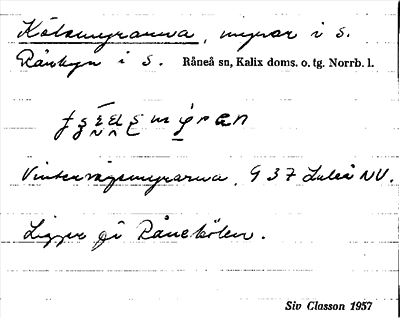 Kölsmyrarna, myrar i s.
Rånbyn i S. Råneå sn, Kalix doms. o. tg. Norrb. l.
Vintervägsmyrarna, G 37 Luleå NV.
Ligger på Rånekölen.
Siv Classon 1957